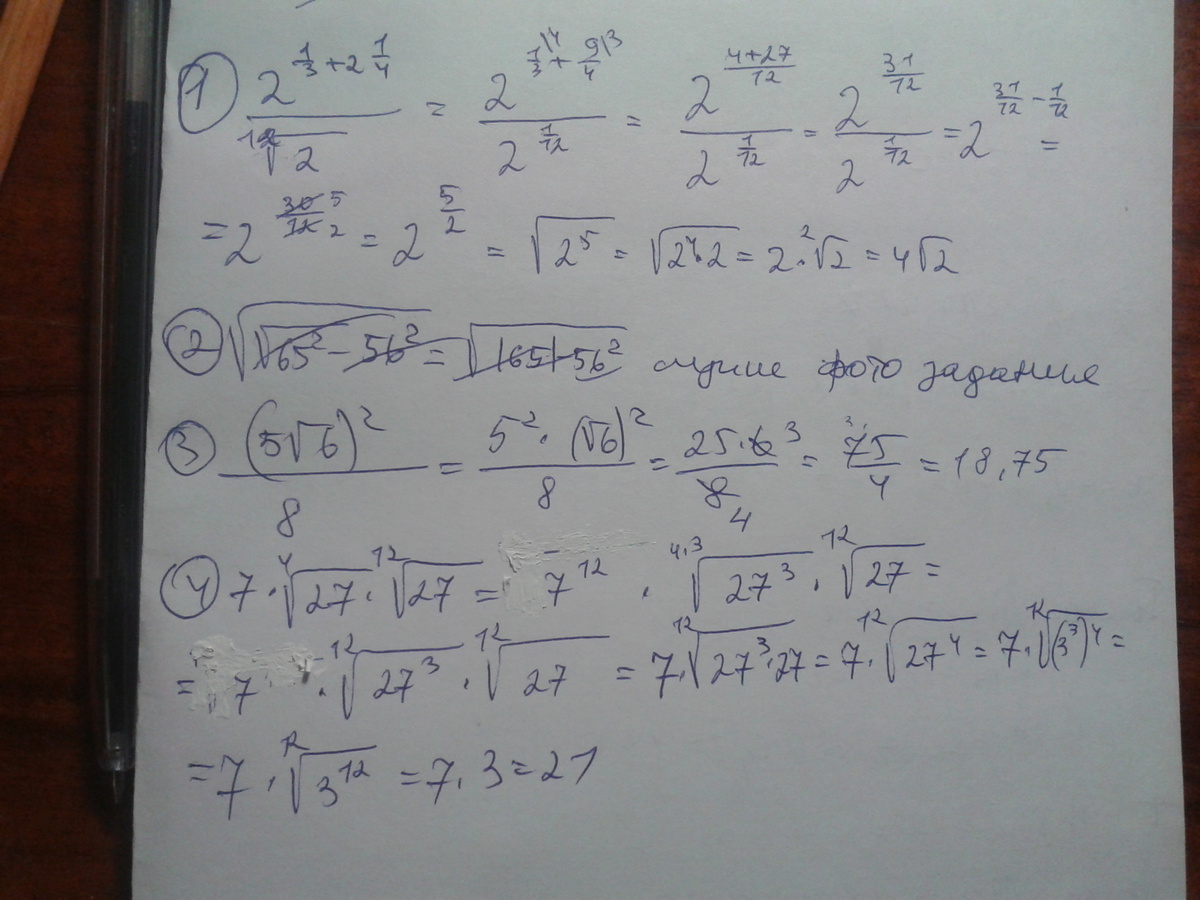 ① 2^(1/3 + 2 1/4) / ¹²√2 = 2^(1/3\4 + 9/4\3) / 2^(1/12) = 2^((4+27)/12) / 2^(1/12) = 2^(31/12) / 2^(1/12) = 2^(31/12 − 1/12) =
= 2^(30/12 5/2) = 2^(5/2) = √2⁵ = √2⁴·2 = 2²·√2 = 4√2
② √√65² − 56² = √|65|−56² лучше фото задания
③ (5√6)² / 8 = 5²·(√6)² / 8 = 25·6 3 / 8 4 = 75/4 = 18,75
④ 7·⁴√27·¹²√27 = 7¹² · ⁴·³√27³ · ¹²√27 =
= 7 · ¹²√27³ · ¹²√27 = 7·¹²√27³·27 = 7·¹²√27⁴ = 7·¹²√(3³)⁴ =
= 7 · ¹²√3¹² = 7·3 = 21